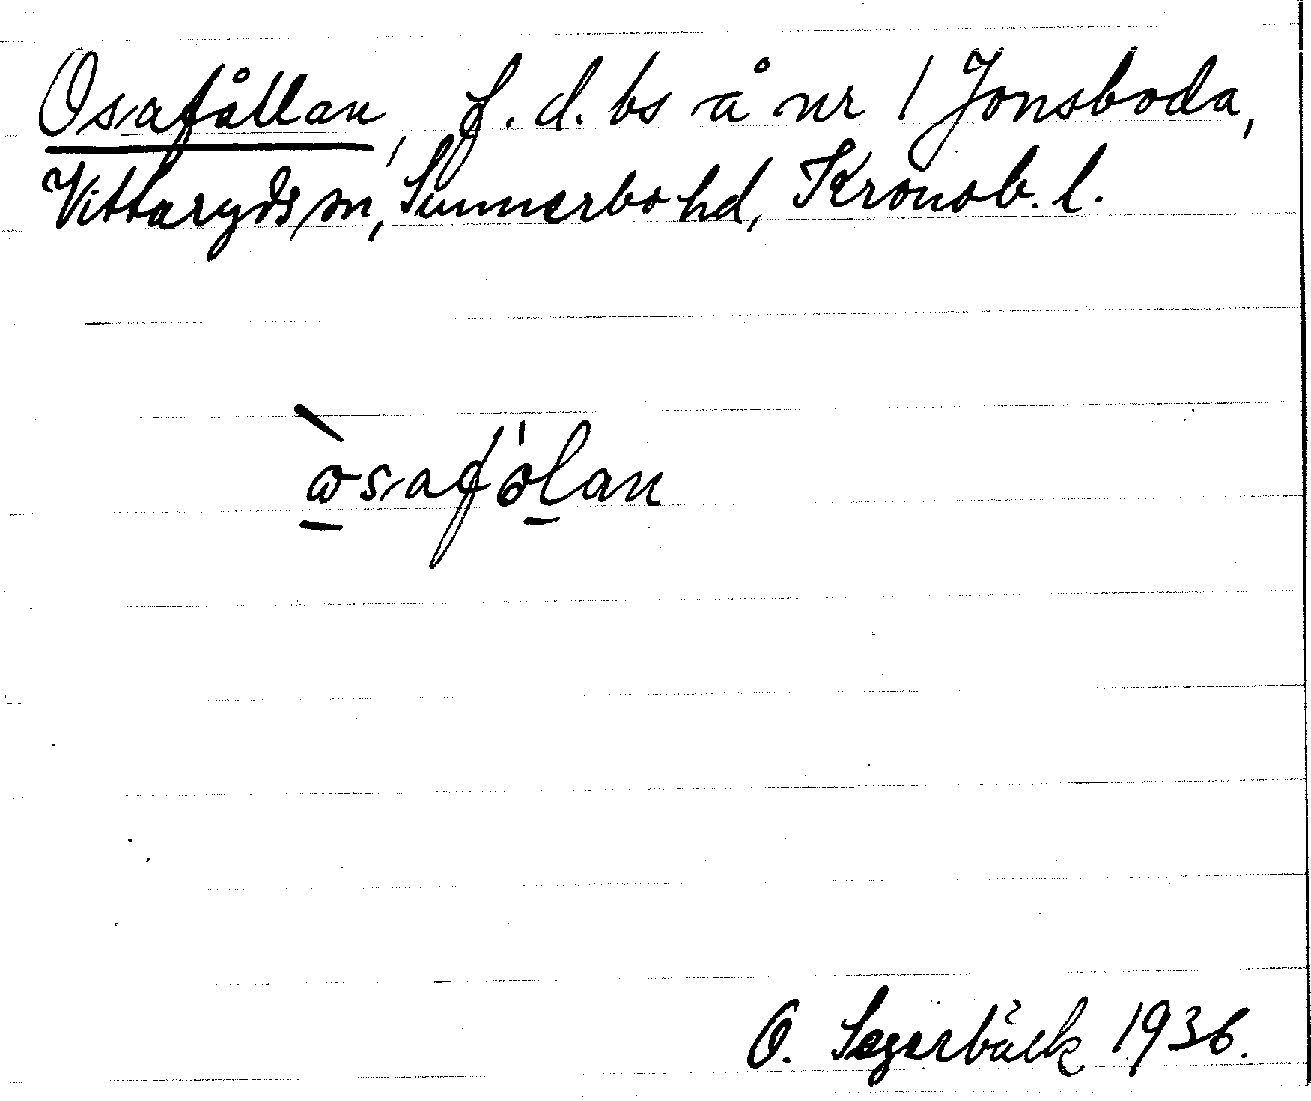 Osafållan, f. d. bs å nr 1 Jonsboda,
Vittaryds sn, Sunnerbo hd, Kronob. l.
òsafólan
O. Segerbäck 1936.